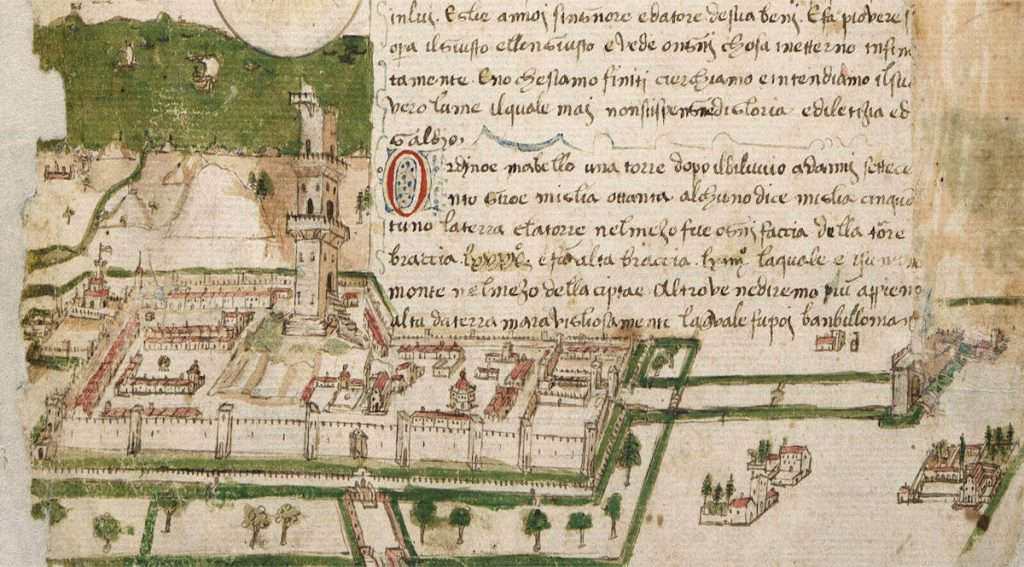 inlui. Eglie annoi singnore edatore desua beni. Efa piovere s
opra ilGiusto ellengiusto evede ongni chosa inetterno infini
tamente. Eno chestamo finiti cierchiamo eintendiamo ilsu
vero lume ilquale mai nonsispengie digloria edileticia ed
Galdio.
Ordinoe mabello una torre dopo ildiluvio adanni settece
nto giroe miglia ottanta alchuno dice miglia cinque
tuno laterra elatorre nelmezo fue ongni faccia della tore
braccia lxxxx. e fu alta braccia. laquale e
monte nelmezo della ciptae. Altrove nediremo piu appieno
alta daterra maravigliosamente laquale fupoi banbillonia